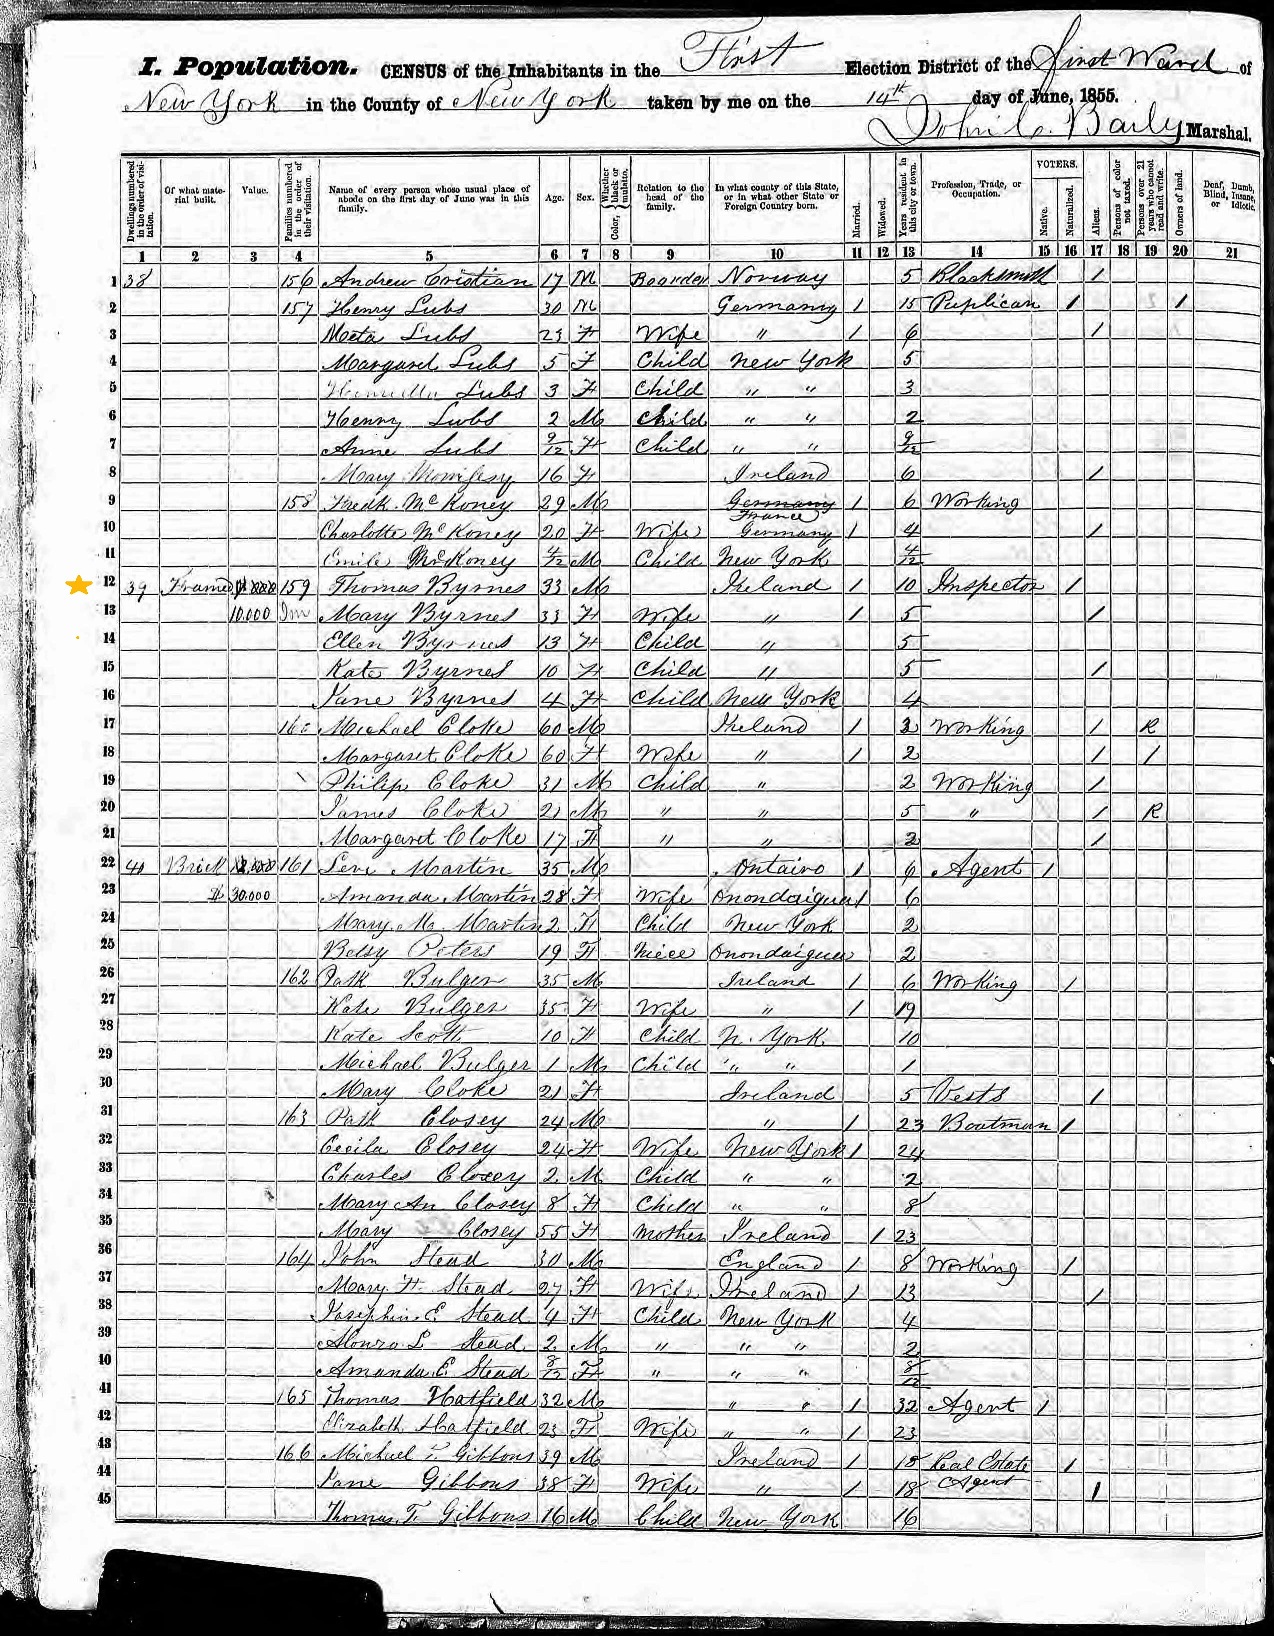 I. Population. CENSUS of the Inhabitants in the First Election District of the first Ward of
New York in the County of New York taken by me on the 14th day of June, 1855.
John C. Baily Marshal.
Dwellings numbered in the order of visitation. Of what material built. Value. Families numbered in the order of their visitation. Name of every person whose usual place of abode on the first day of June was in this family. Age. Sex. Color, Whether black or mulatto. Relation to the head of the family. In what county of this State, or in what other State or Foreign Country born. Married. Widowed. Years resident in this city or town. Profession, Trade, or Occupation. VOTERS. Native. Naturalized. Aliens. Persons of color not taxed. Persons over 21 years who cannot read and write. Owners of land. Deaf, Dumb, Blind, Insane, or Idiotic.
1 2 3 4 5 6 7 8 9 10 11 12 13 14 15 16 17 18 19 20 21
1 38 156 Andrew Cristian 17 M Boarder Norway 5 Blacksmith 1
2 157 Henry Lubs 30 M Germany 1 15 Puplican 1 1
3 Meta Lubs 23 F Wife " 1 6 1
4 Margared Lubs 5 F Child New York 5
5 Lubs 3 F Child " " 3
6 Henry Lubs 2 M Child " " 2
7 Anne Lubs 9/12 F Child " " 9/12
8 Mary 16 F Ireland 6 1
9 158 Fredk. McKoney 29 M Germany France 1 6 Working
10 Charlotte McKoney 20 F Wife Germany 1 4 1
11 Emile McKoney 4/12 M Child New York 4/12
12 39 Framed 159 Thomas Byrnes 33 M Ireland 1 10 Inspector 1
13 10.000 Mary Byrnes 33 F Wife " 1 5 1
14 Ellen Byrnes 13 F Child " 5
15 Kate Byrnes 10 F Child " 5 1
16 Jane Byrnes 4 F Child New York 4
17 160 Michael Cloke 60 M Ireland 1 2 Working 1 R
18 Margaret Cloke 60 F Wife " 1 2 1 1
19 Philip Cloke 31 M Child " 2 Working 1
20 James Cloke 21 M " " 5 " 1 R
21 Margaret Cloke 17 F " " 2 1
22 40 Brick 161 Levi Martin 35 M Ontairo 1 6 Agent 1
23 $ 30.000 Amanda Martin 28 F Wife Onondaigua 1 6
24 Mary M. Martin 2 F Child New York 2
25 Betsy Peters 19 F Niece Onondaigua 2
26 162 Patk Bulger 35 M Ireland 1 6 Working 1
27 Kate Bulger 35 F Wife " 1 19
28 Kate Scott 10 F Child N. York. 10
29 Michael Bulger 1 M Child " " 1
30 Mary Cloke 21 F Ireland 5 Vests 1
31 163 Patk Closey 24 M " 1 23 Boatman 1
32 Cecila Closey 24 F Wife New York 1 24
33 Charles Closey 2 M Child " " 2
34 Mary An Closey 8 F Child " " 8
35 Mary Closey 55 F Mother Ireland 1 23
36 164 John Stead 30 M England 1 8 Working 1
37 Mary F. Stead 27 F Wife Ireland 1 13 1
38 Josephin E. Stead 4 F Child New York 4
39 Alonzo L. Stead 2 M " " " 2
40 Amanda E. Stead 8/12 F " " " 8/12
41 165 Thomas Hatfield 32 M " " 1 32 Agent 1
42 Elizabeth Hatfield 23 F Wife " " 1 23
43 166 Michael T. Gibbons 39 M Ireland 1 18 Real Estate Agent 1
44 Jane Gibbons 38 F Wife " 1 18 1
45 Thomas T. Gibbons 16 M Child New York 16